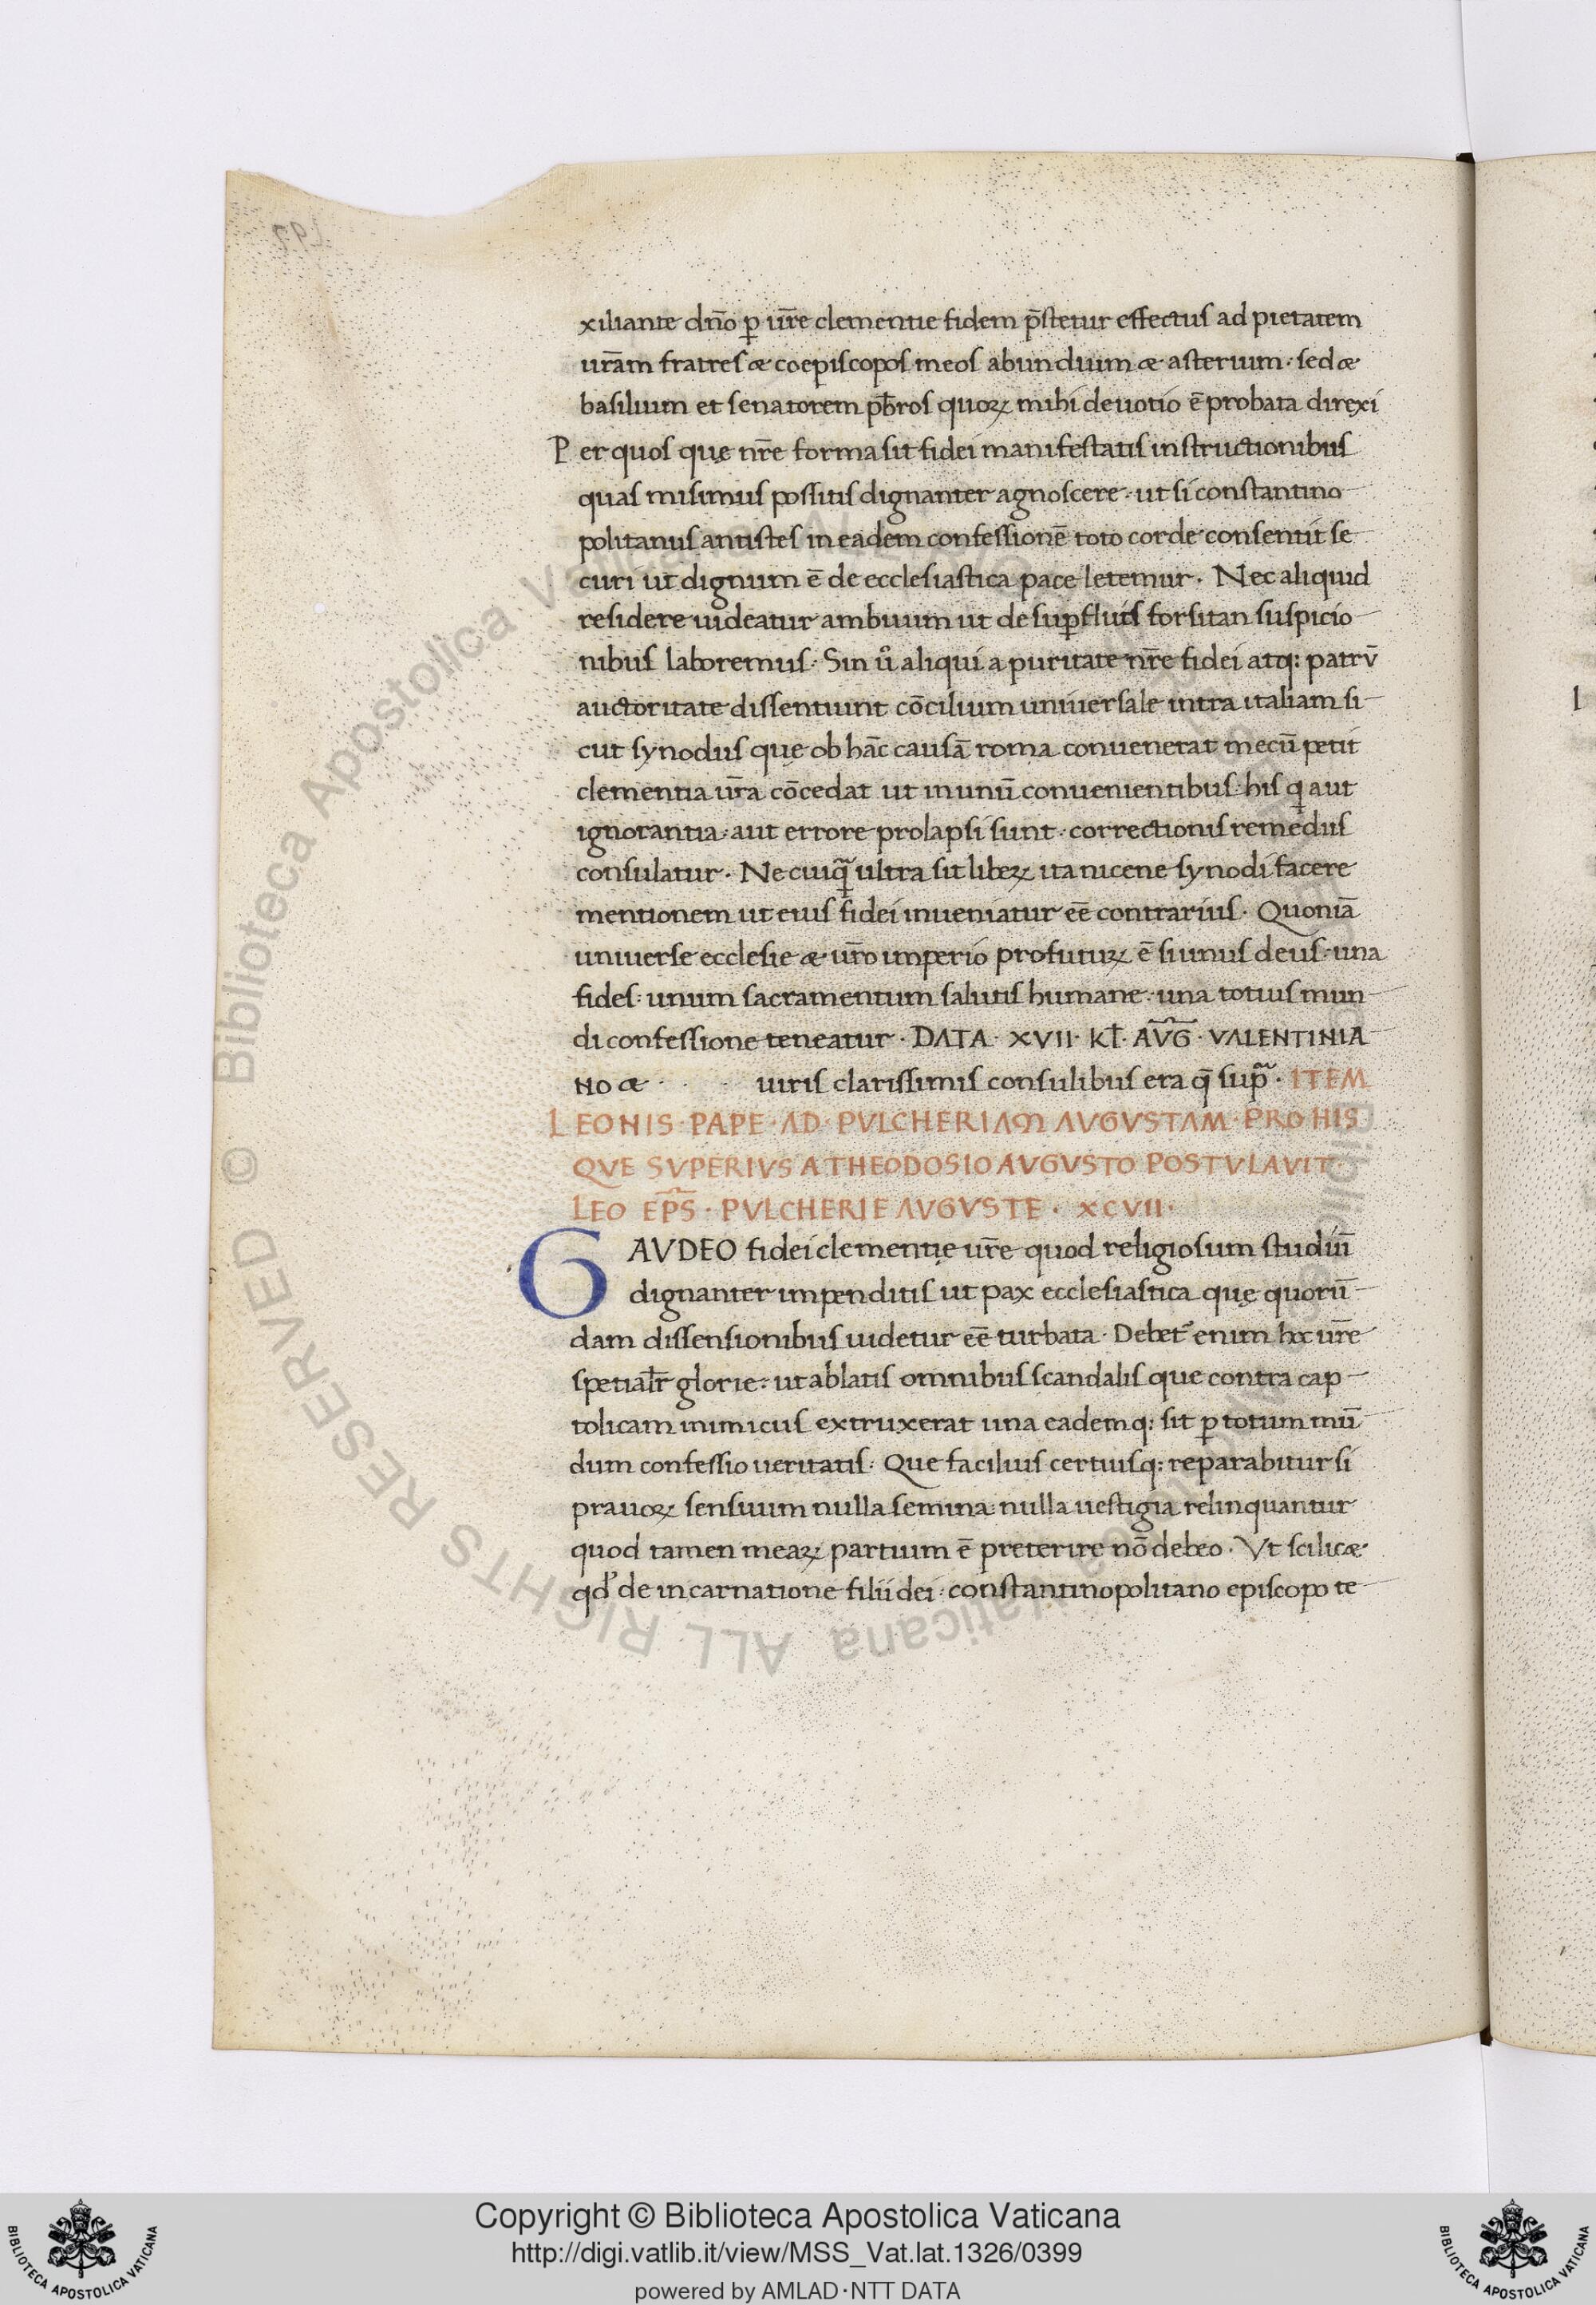 xiliante dn̄o ꝑ ur̄e clementie fidem p̄stetur effectus ad pietatem
ur̄am fratres & coepiscopos meos abundium & asterium · sed &
basilium et senatorem pb̄ros quoꝝ mihi deuotio ē probata direxi
Per quos quę nr̄e forma sit fidei manifestatis instructionibus
quas misimus possitis dignanter agnoscere · ut si constantino
politanus antistes in eadem confessionē toto corde consentit se
curi ut dignum ē de ecclesiastica pace letemur · Nec aliquid
residere uideatur ambuum ut de suꝑfluis forsitan suspicio
nibus laboremus · Sin ů aliqui a puritate nr̄e fidei atq: patrū
auctoritate dissentiunt cōcilium uniuersale intra italiam si
cut synodus quę ob hāc causā roma conuenerat mecū petit
clementia ur̄a cōcedat ut in unū conuenientibus · his qi aut
ignorantia · aut errore prolapsi sunt · correctionis remediis
consulatur · Ne cuiqᷓ ultra sit libeꝝ ita nicene synodi facere
mentionem ut eius fidei inueniatur eē contrarius · Quoniā
uniuerse ecclesie & ur̄o imperio profutuꝝ ē si unus deus · una
fides · unum sacramentum salutis humane · una totius mun
di confessione teneatur · DATA · XVII · KL̄ · AV̄G · VALENTINIA
NO & · · · uiris clarissimis consulibus era q̄ supᷓ · ITEM
LEONIS · PAPE · AD · PVLCHERIAM AVGVSTAM · PRO HIS
QVE SVPERIVS A THEODOSIO AVGVSTO POSTVLAVIT ·
LEO EP̄S · PVLCHERIE AVGVSTE · XCVII ·
GAVDEO fidei clementię ur̄e quod religiosum studiū
dignanter impenditis ut pax ecclesiastica quę quorū
dam dissensionibus uidetur eē turbata · Debet enim hoc ur̄e
spetialr̄ glorie · ut ablatis omnibus scandalis que contra cap
tolicam inimicus extruxerat una eademq: sit ꝑ totum mū
dum confessio ueritatis · Que facilius certiusq: reparabitur si
prauoꝝ sensuum nulla semina · nulla uestigia relinquantur
quod tamen meaꝝ partium ē preterire nō debeo · Vt scilic&
qd' de incarnatione filii dei · constantinopolitano episcopo te
Biblioteca Apostolica Vaticana ALL RIGHTS RESERVED ©
Copyright © Biblioteca Apostolica Vaticana
http://digi.vatlib.it/view/MSS_Vat.lat.1326/0399
powered by AMLAD·NTT DATA
BIBLIOTECA APOSTOLICA VATICANA
BIBLIOTECA APOSTOLICA VATICANA